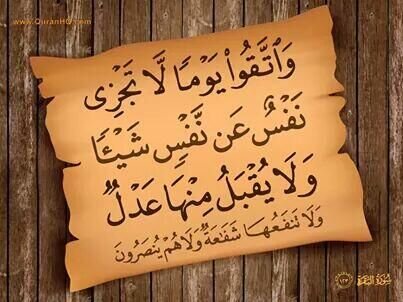 www.QuranHQ.com
وَٱتَّقُوا۟ يَوْمًا لَّا تَجْزِى
نَفْسٌ عَن نَّفْسٍ شَيْـًٔا
وَلَا يُقْبَلُ مِنْهَا عَدْلٌ
وَلَا تَنفَعُهَا شَفَٰعَةٌ وَلَا هُمْ يُنصَرُونَ
سُورَةُ البَقَرَة ١٢٣